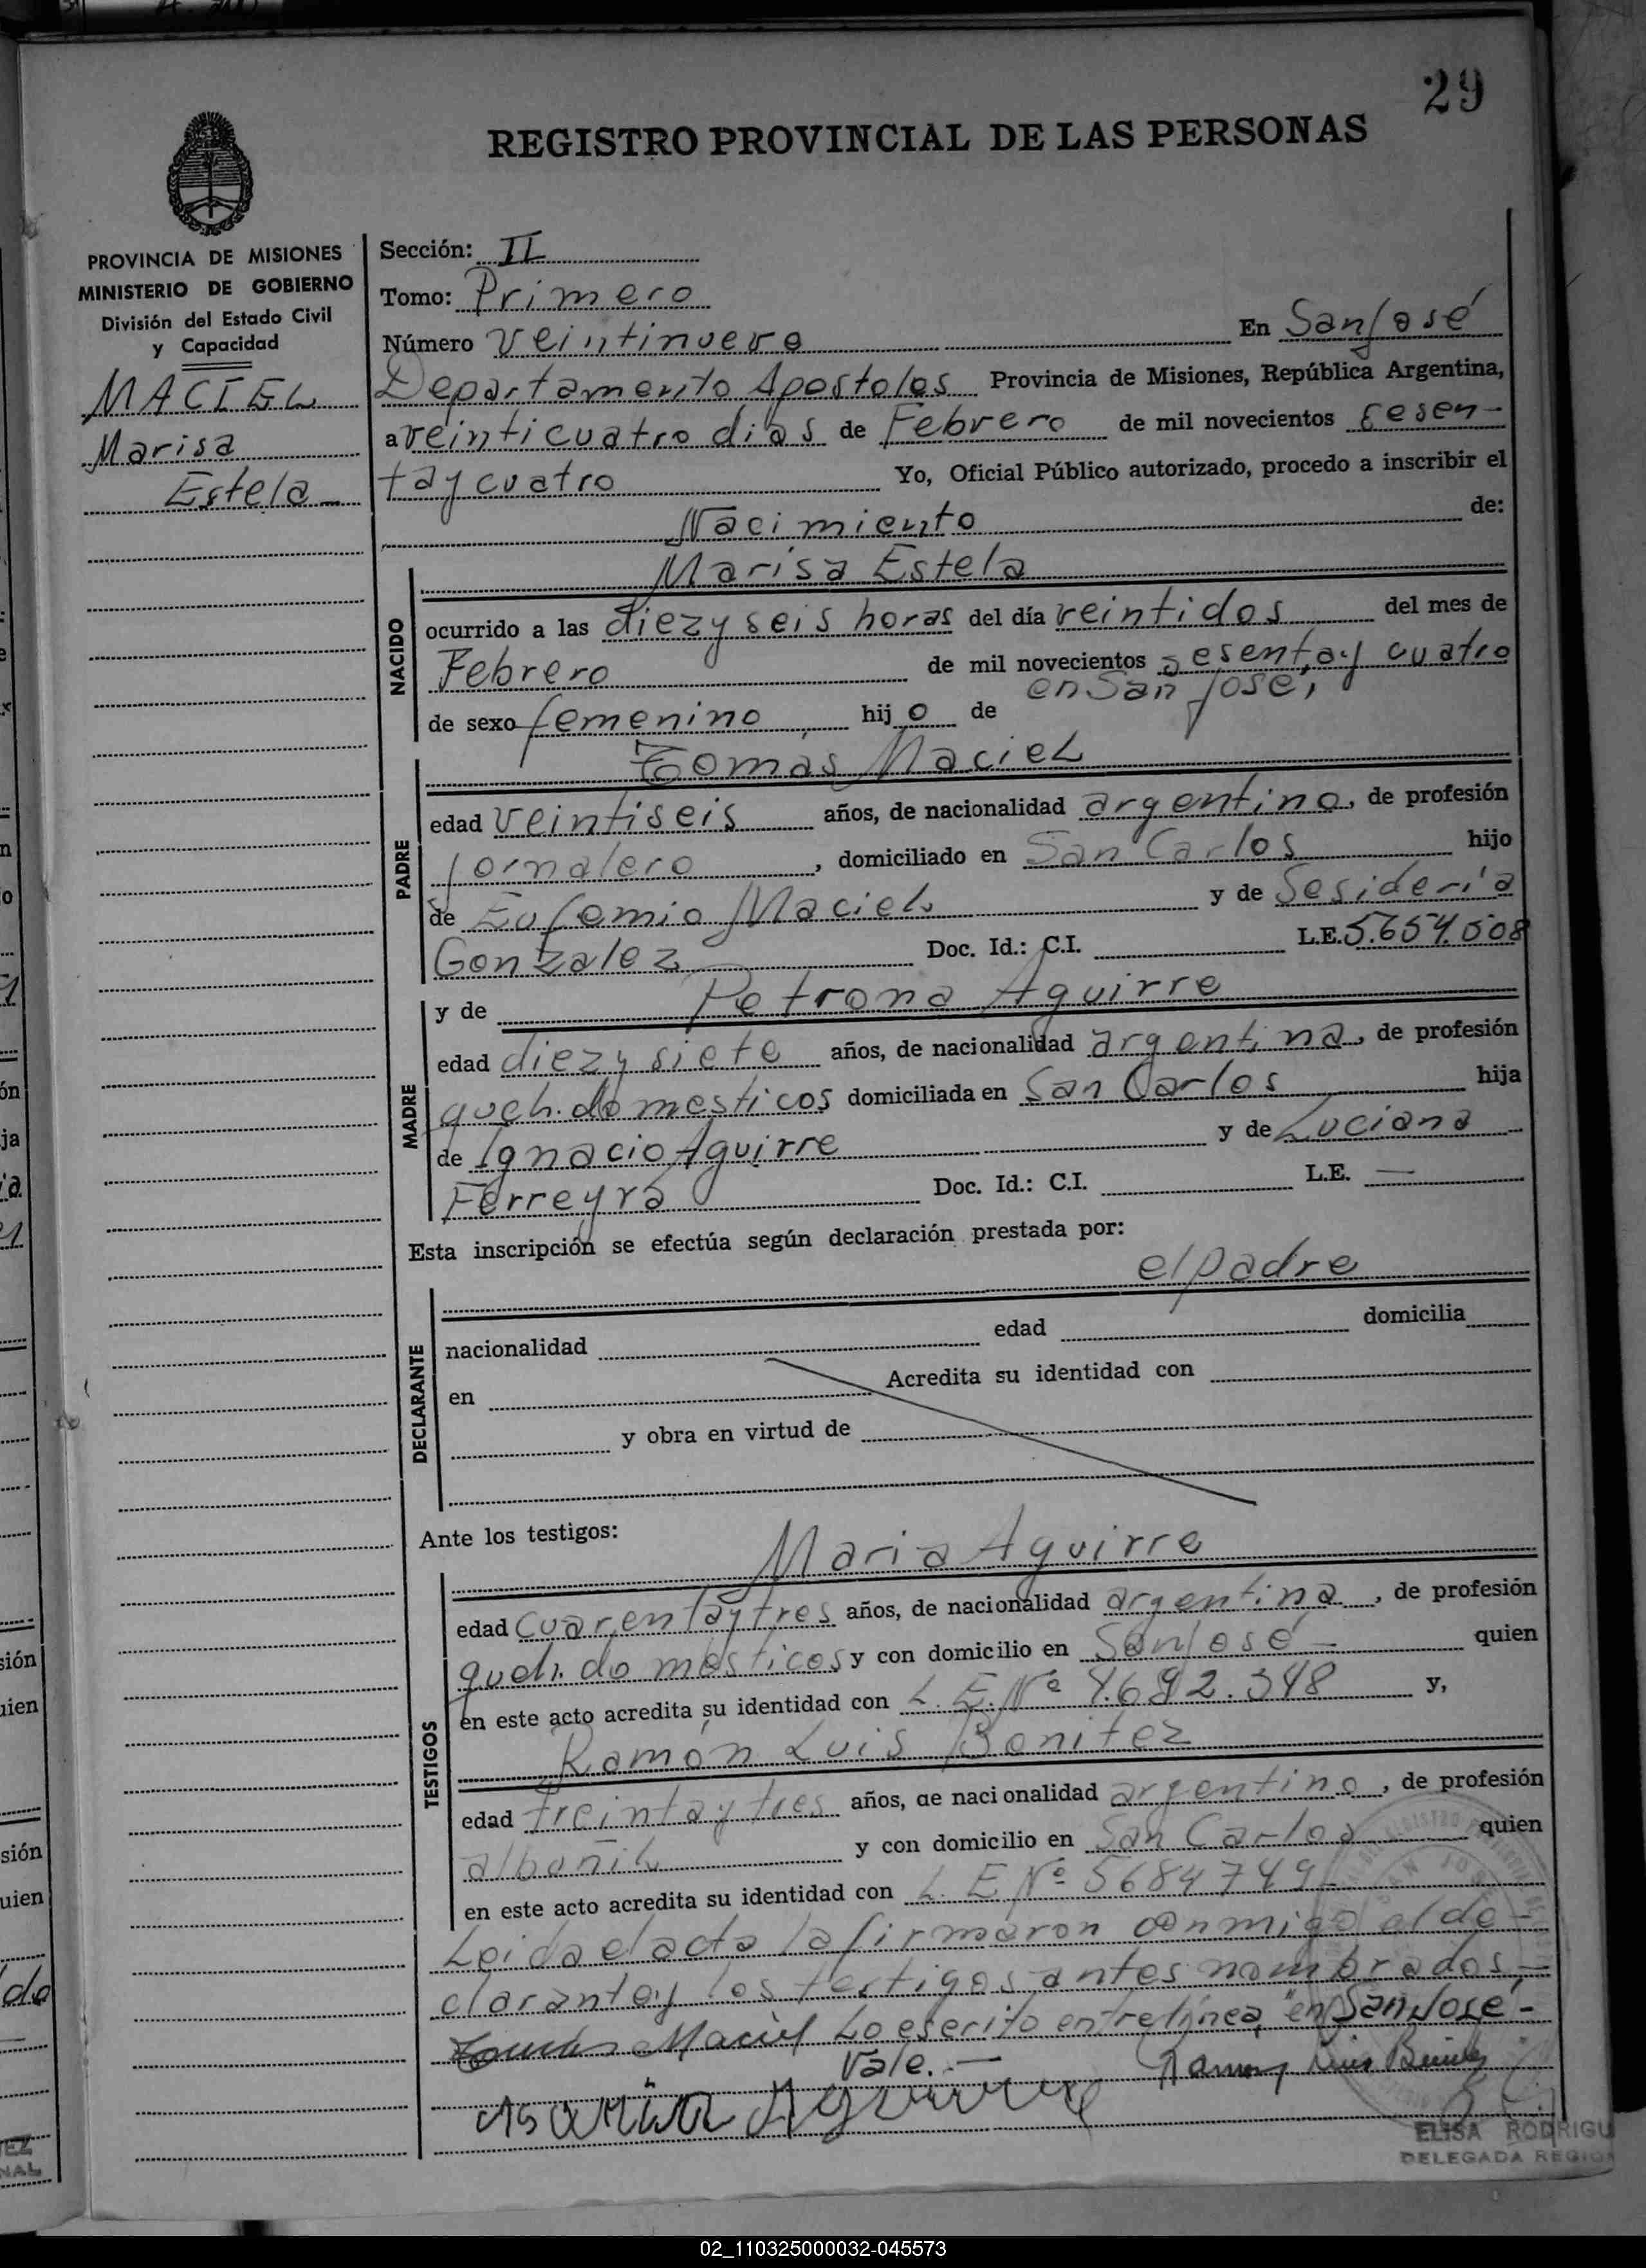 29
REGISTRO PROVINCIAL DE LAS PERSONAS
PROVINCIA DE MISIONES
MINISTERIO DE GOBIERNO
División del Estado Civil
y Capacidad
MACIEL
Marisa
Estela
Sección: II
Tomo: Primero
Número veintinueve En San José
Departamento Apostoles Provincia de Misiones, República Argentina,
a veinticuatro dias de Febrero de mil novecientos sesen-
tay cuatro Yo, Oficial Público autorizado, procedo a inscribir el
Nacimiento de:
NACIDO
Marisa Estela
ocurrido a las diez y seis horas del día veintidos del mes de
Febrero de mil novecientos sesentay cuatro
en San José,
de sexo femenino hijo de
PADRE
Tomas Maciel
edad veintiseis años, de nacionalidad argentino, de profesión
Jornalero, domiciliado en San Carlos hijo
de Eufemio Maciel y de Sesideria
Gonzalez Doc. Id.: C.I. L.E. 5.654.508
MADRE
y de Petrona Aguirre
edad diez y siete años, de nacionalidad argentina, de profesión
queh. domesticos domiciliada en San Carlos hija
de Ignacio Aguirre y de Luciana
Ferreyra Doc. Id.: C.I. L.E. —
Esta inscripción se efectúa según declaración prestada por:
DECLARANTE
el padre
nacionalidad edad domicilia
en Acredita su identidad con
y obra en virtud de
Ante los testigos:
TESTIGOS
Maria Aguirre
edad cuarentaytres años, de nacionalidad argentina, de profesión
queh. domésticos y con domicilio en San José — quien
en este acto acredita su identidad con L. E. Nº 4.692.348 y,
Ramón Luis Benitez
edad treintaytres años, de nacionalidad argentino, de profesión
albañil y con domicilio en San Carlos quien
en este acto acredita su identidad con L. E Nº 5684749
Leida el acta la firmaron conmigo el de-
clarantey los testigos antes nombrados,—
Tomás Maciel Lo escrito entrelínea, "en San José"-
Vale.— Ramon Luis Benitez
Maria Aguirre
ELISA RODRIGU
DELEGADA REGION
02_110325000032-045573